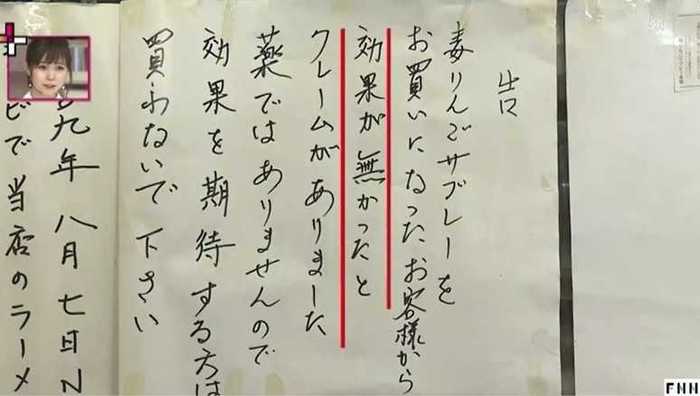 出口
毒りんごサブレーを
お買いになったお客様から
効果が無かったと
クレームがありました
薬ではありませんので
効果を期待する方は
買わないで下さい
九年八月七日N
ビで当店のラーメ
FNN